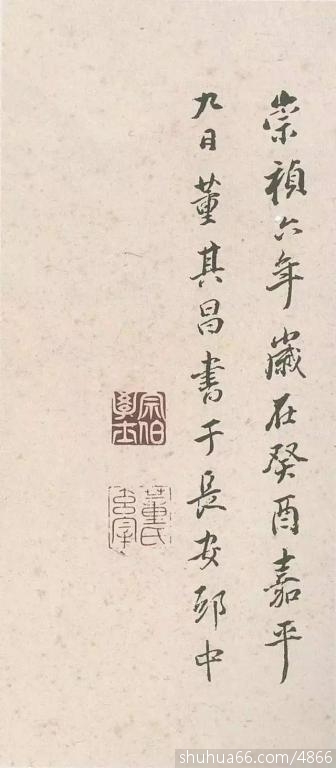 崇禎六年歲在癸酉嘉平
九日董其昌書于長安邸中
宗伯學士
董氏玄宰
shuhua66.com/4866